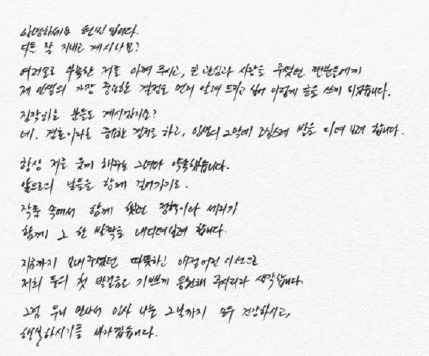 안녕하세요 현빈입니다.
다들 잘 지내고 계시나요?
여러모로 부족한 저를 아껴 주시고, 큰 관심과 사랑을 주셨던 팬분들에게
제 인생의 가장 중요한 결정을 먼저 알려 드리고 싶어 이렇게 글을 쓰게 되었습니다.
짐작하고 분들도 계시겠지요?
네. 결혼이라는 중요한 결정을 하고, 인생의 2막에 조심스레 발을 디뎌 보려 합니다.
항상 저를 웃게 해주는 그녀와 약속했습니다.
앞으로의 날들을 함께 걸어가기로.
작품 속에서 함께 했던 정혁이와 세리가
함께 그 한 발짝을 내디뎌보려 합니다.
지금까지 보내주셨던 따뜻하고 애정어린 시선으로
저희 둘의 첫 발걸음을 기쁘게 응원해 주시리라 생각합니다.
그럼 우리 만나서 인사 나눌 그날까지 모두 건강하시고,
행복하시기를 바라겠습니다.